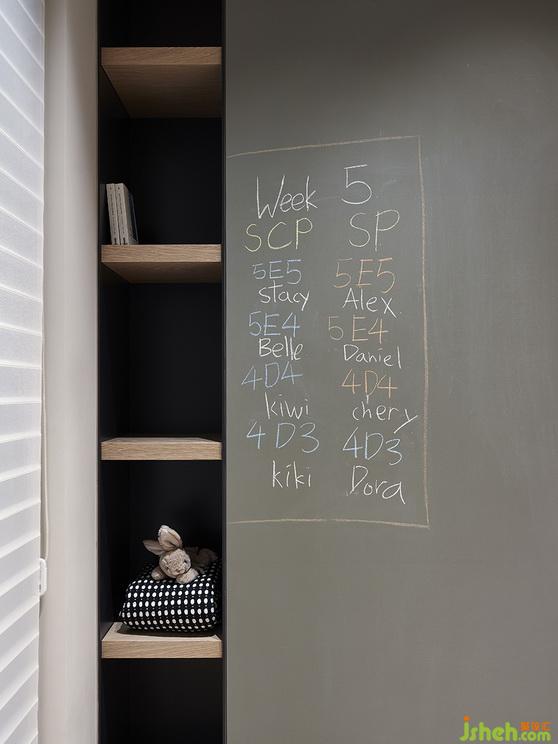 Week 5
SCP SP
5E5 5E5
stacy Alex
5E4 5E4
Belle Daniel
4D4 4D4
kiwi chery
4D3 4D3
kiki Dora
jsheh.com